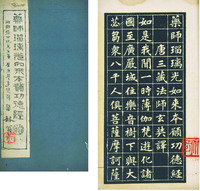 藥師瑠璃光如來本願功德經
唐三藏法師玄奘譯
如是我聞一時薄伽梵遊化諸
國至廣嚴城住樂音樹下與大
苾芻衆八千人俱菩薩摩訶薩
藥師瑠璃光如來本願功德經